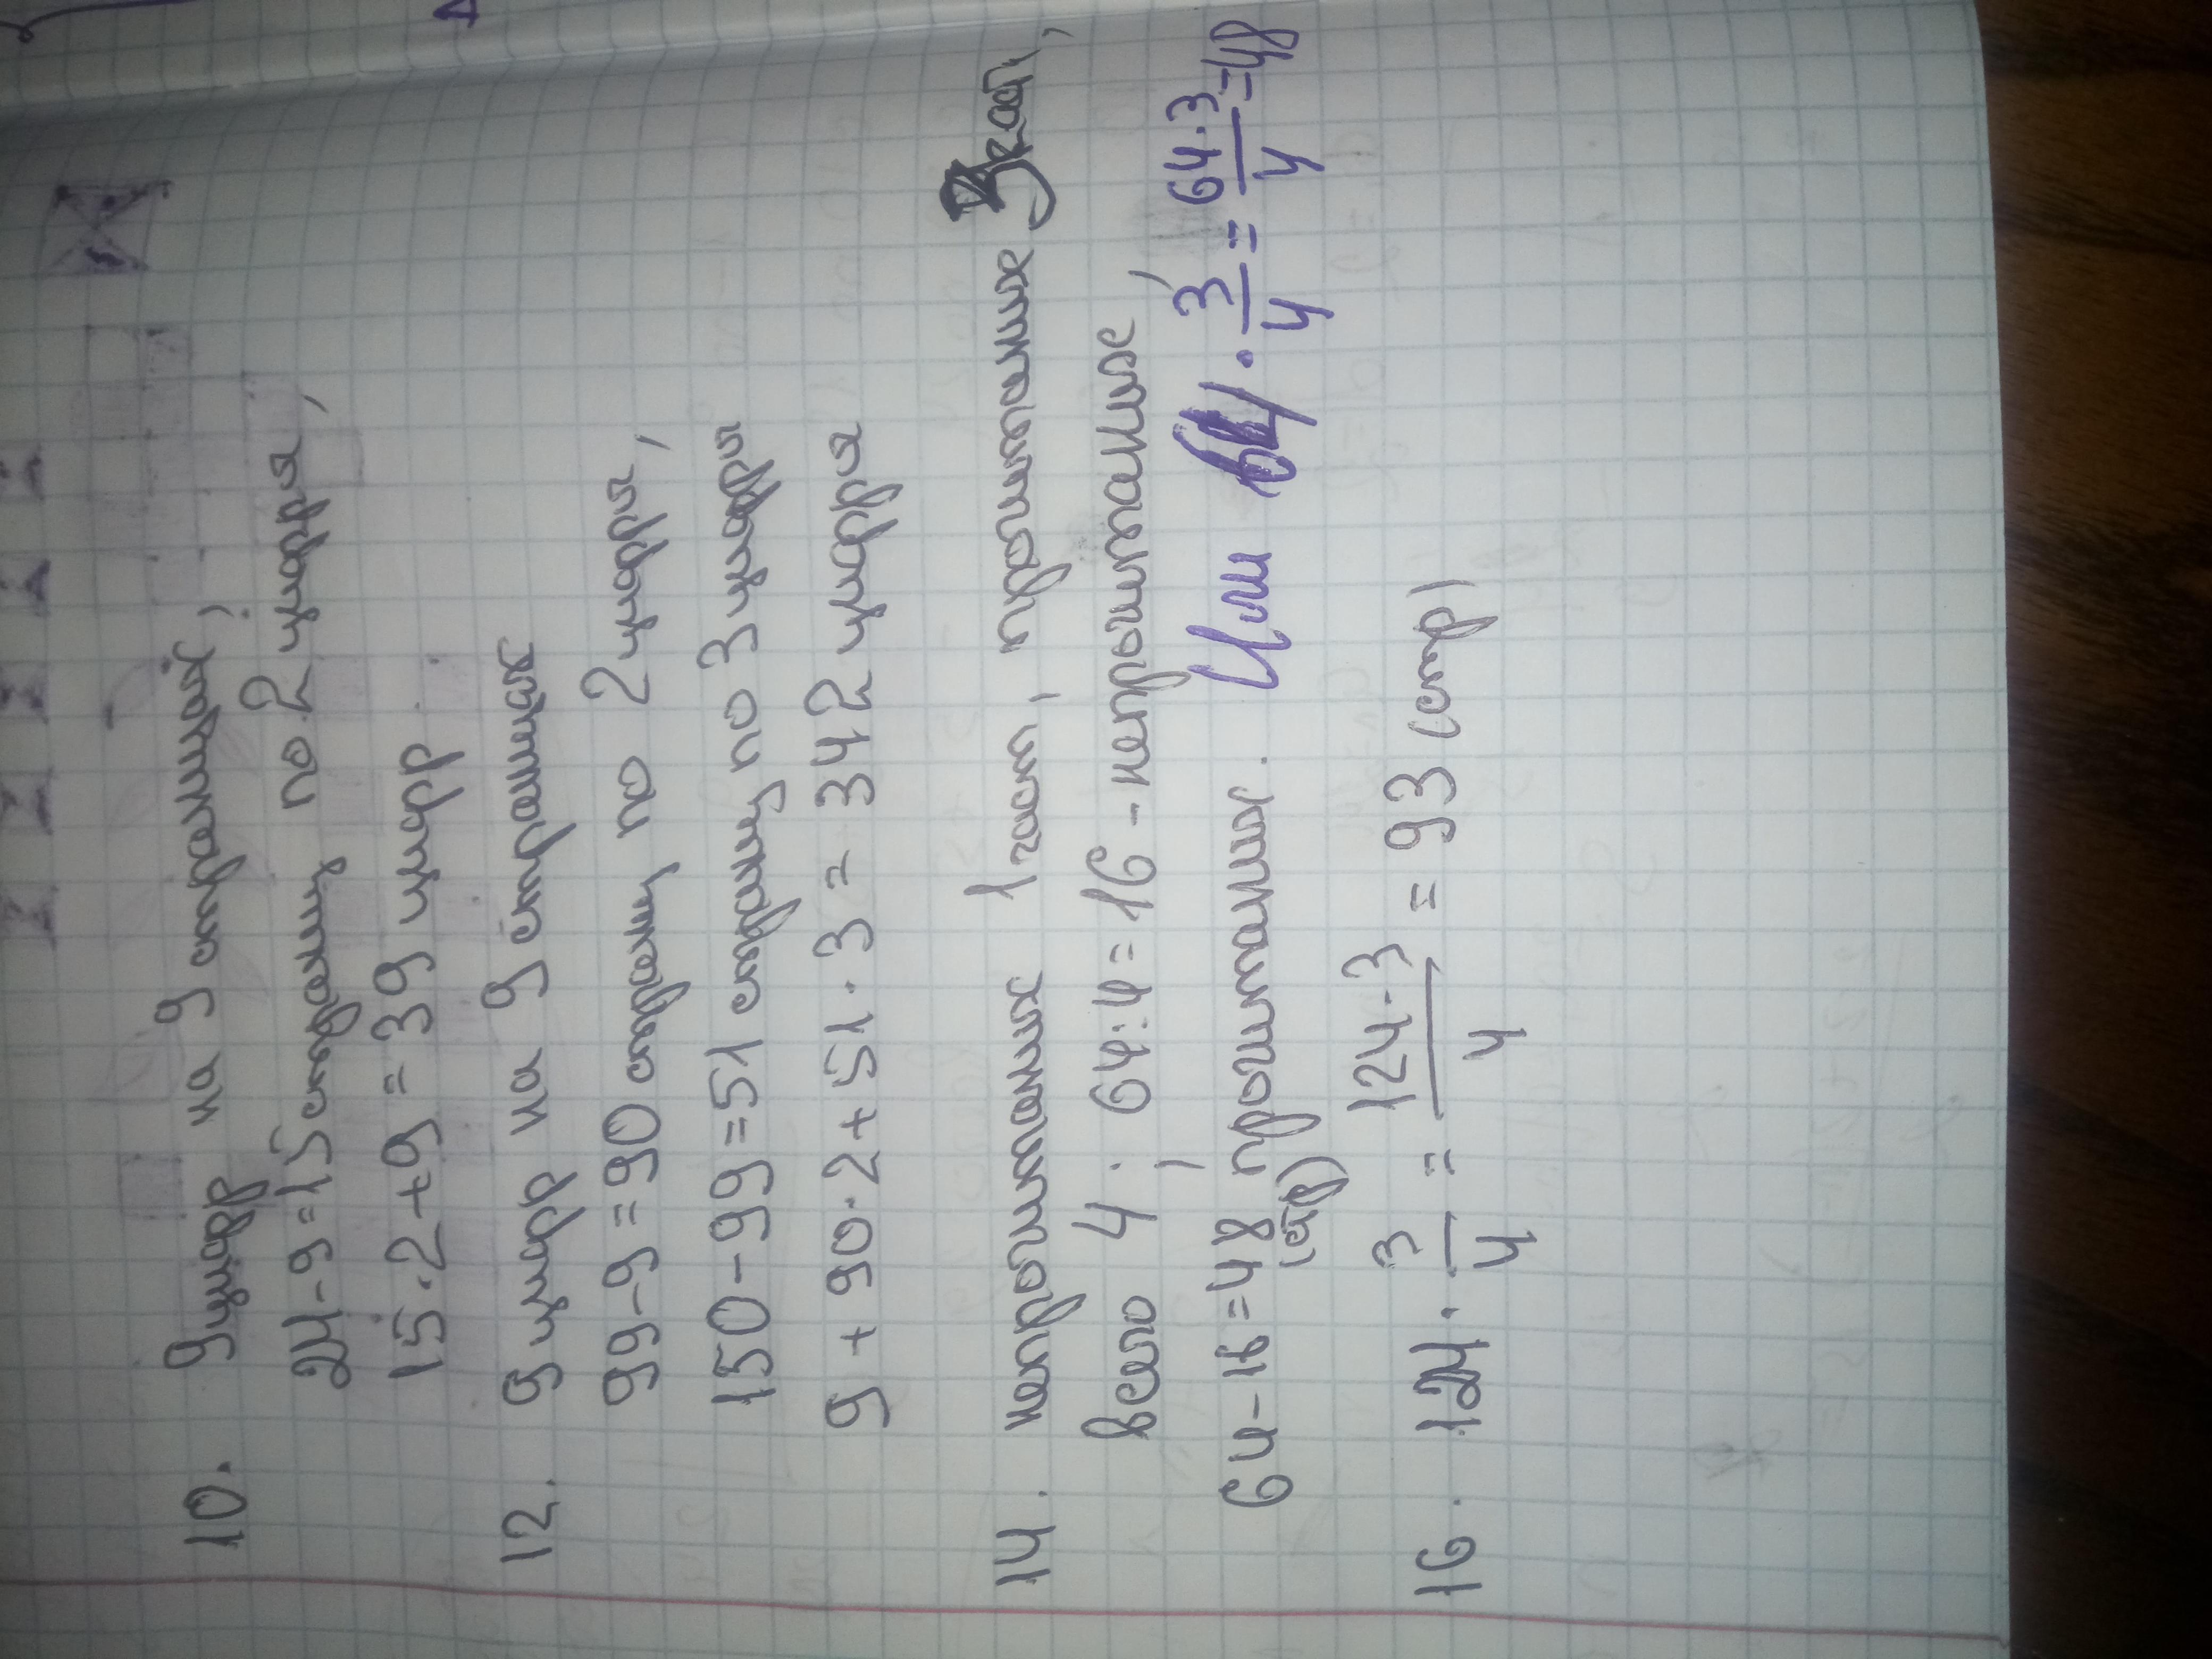 10. 9 цифр на 9 страницах,
24-9=15 страниц по 2 цифры,
15·2+9=39 цифр
12. 9 цифр на 9 страницах
99-9=90 страниц по 2 цифры,
150-99=51 страниц по 3 цифры
9+90·2+51·3=342 цифры
14. непрочитанных 1 част, прочитанных 3 част,
всего 4. 64:4=16 - непрочитаных,
64-16=48 прочитаных. Или 64·3/4=64·3/4=48
(стр)
16. 124·3/4=124·3/4=93 (стр)